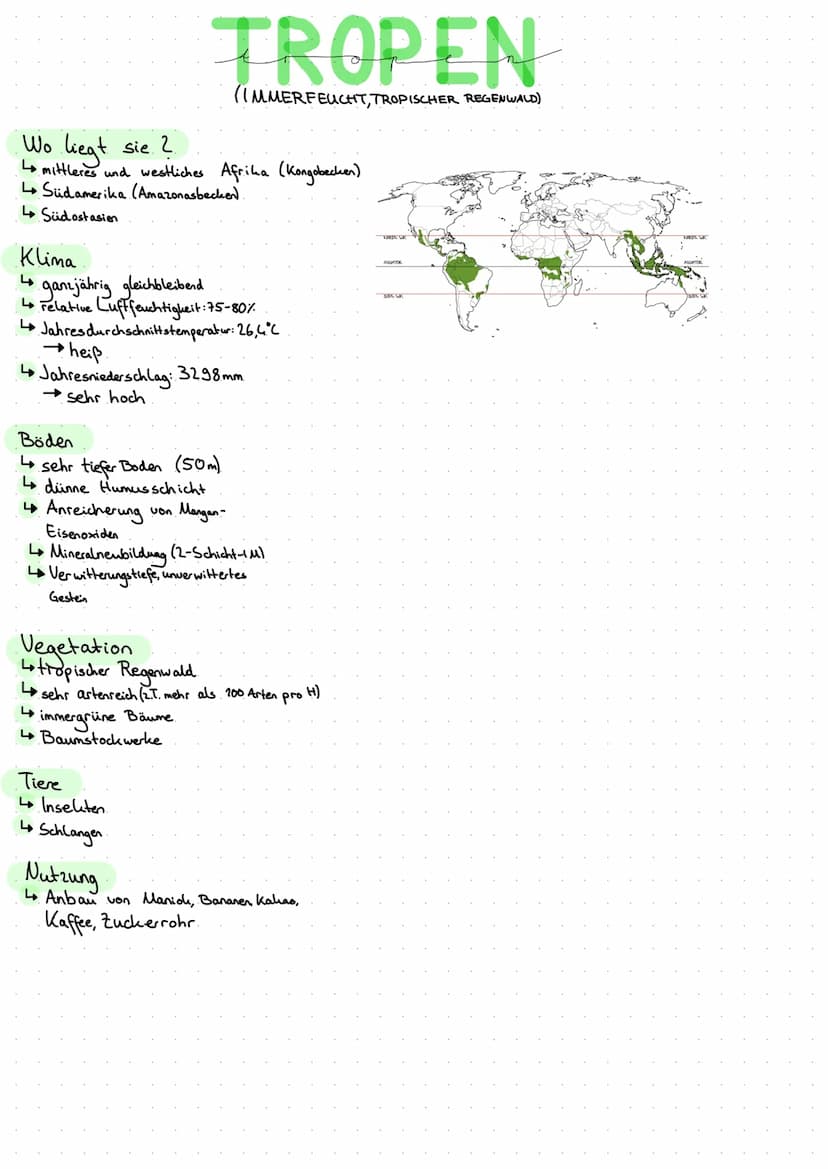 TROPEN
tropen
(IMMERFEUCHT, TROPISCHER REGENWALD)
Wo liegt sie?
↳ mittleres und westliches Afrika (Kongobecken)
↳ Südamerika (Amazonasbecken)
↳ Südostasien
Klima
↳ ganzjährig gleichbleibend
↳ relative Luftfeuchtigkeit: 75-80%
↳ Jahresdurchschnittstemperatur: 26,4°C
→ heiß
↳ Jahresniederschlag: 3298mm
→ sehr hoch
Böden
↳ sehr tiefer Boden (50m)
↳ dünne Humusschicht
↳ Anreicherung von Mangan-
Eisenoxiden
↳ Mineralneubildung (2-Schicht-1M)
↳ Verwitterungstiefe, unverwittertes
Gestein
Vegetation
↳ tropischer Regenwald
↳ sehr artenreich (z.T. mehr als 100 Arten pro H)
↳ immergrüne Bäume
↳ Baumstockwerke
Tiere
↳ Insekten
↳ Schlangen
Nutzung
↳ Anbau von Maniok, Bananen, Kakao,
Kaffee, Zuckerrohr